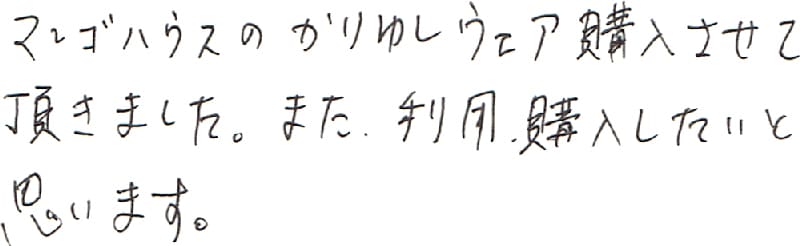 マンゴハウスのかりゆしウェア購入させて
頂きました。また、利用、購入したいと
思います。